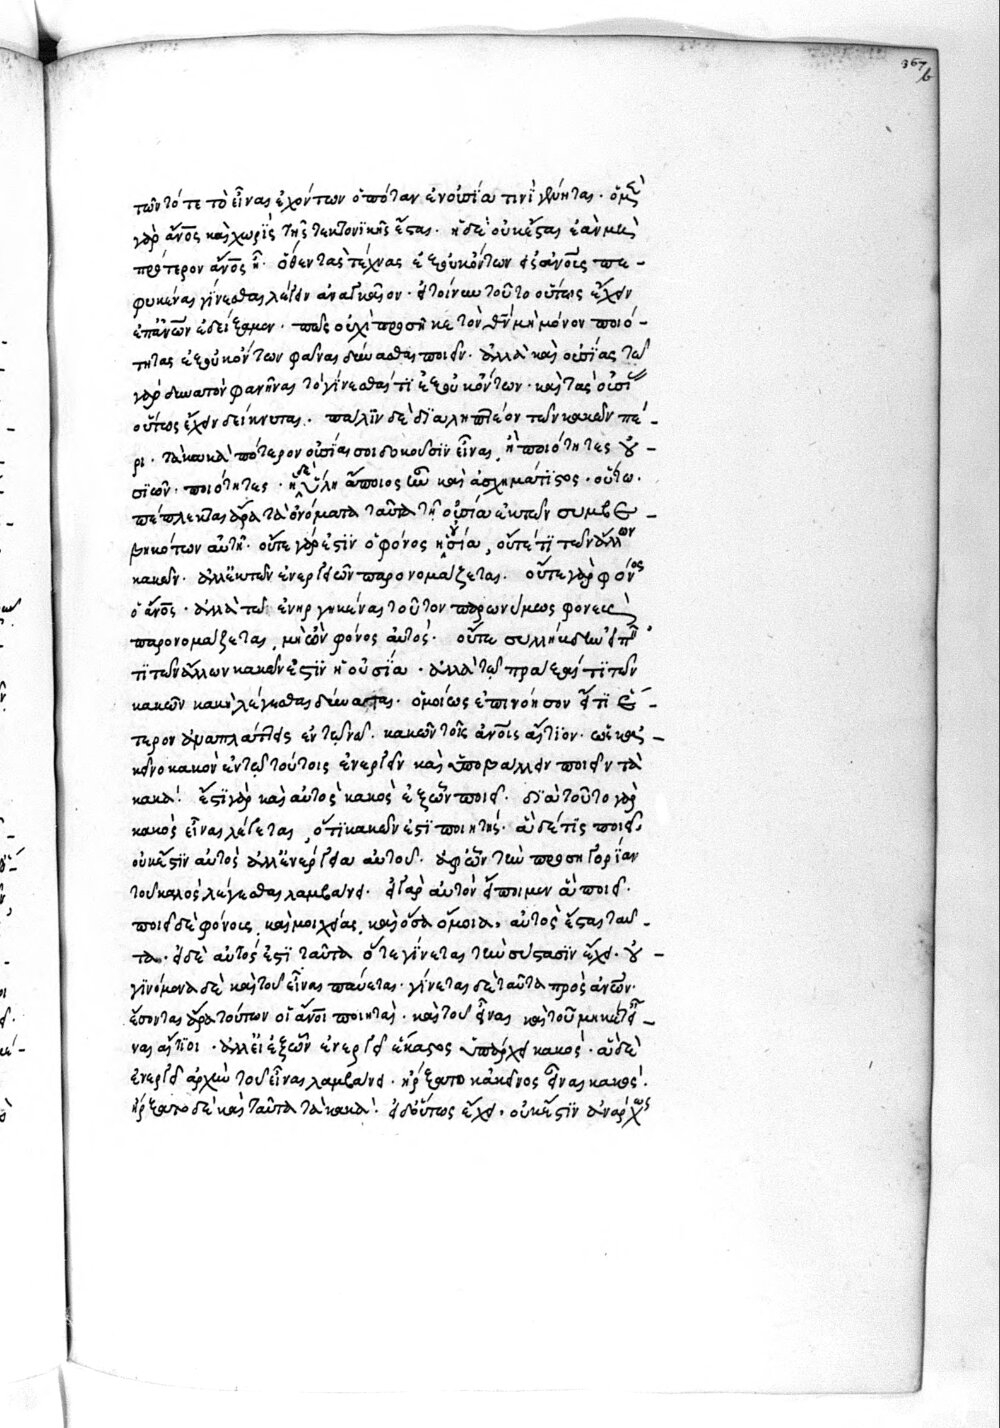 367/b
των τότε τὸ εἶναι ἐχόντων ὁπόταν ἐν οὐσία τινὶ γένηται. ὁ μὲν
γὰρ ἄνος καὶ χωρὶς τῆς τεκτονικῆς ἔσται. ἡ δὲ οὐκ ἔσται ἐὰν μὴ
πρότερον ἄνος ἦ. ὅθεν τὰς τέχνας ἐξ οὐκ ὄντων εἰς ἀνοις πε-
φυκέναι γίνεσθαι λέγειν ἀναγκαῖον. εἰ τοίνυν τοῦτο οὕτως ἔχειν
ἐπ' ἀνων ἐδείξαμεν. πῶς οὐχὶ προσῆκε τὸν θν μὴ μόνον ποιό-
τητας ἐξ οὐκ ὄντων φάναι δύνασθαι ποιεῖν. ἀλλὰ καὶ οὐσίας τὸ
γὰρ δυνατὸν φανῆναι τὸ γίνεσθαί τι ἐξ οὐκ ὄντων. καὶ τὰς οὐσί
οὕτως ἔχειν δείκνυται. πάλιν δὲ διαληπτέον τῶν κακῶν πέ-
ρι. τὰ κακὰ πότερον οὐσίαι σοι δοκοῦσιν εἶναι, ἢ ποιότητες οὐ-
σιῶν. ποιότητες. ἡ δὲ ὕλη ἄποιος ἦν καὶ ἀσχημάτιστος. οὕτω.
πέπλεκται ἄρα τὰ ὀνόματα ταῦτα τῆ οὐσία ἐκ τῶν συμβε-
βηκότων αὐτῆ. οὔτε γάρ ἐστιν ὁ φόνος ἡ οὐσία, οὔτέ τι τῶν ἄλλων
κακῶν. ἀλλ' ἐκ τῶν ἐνεργειῶν παρονομάζεται. οὔτε γὰρ φόνος
ὁ ἄνος. ἀλλὰ τῶ ἐνηργηκέναι τοῦτον παρωνύμως φονεὺς
παρονομάζεται, μὴ ὢν φόνος αὐτός. οὔτε συλλήβδην εἰπεῖν
τι τῶν ἄλλων κακῶν ἐστὶν ἡ οὐσία. ἀλλὰ τῶ πράξαί τι τῶν
κακῶν κακὴ λέγεσθαι δύναται. ὁμοίως ἐπινόησον εἴ τι ἕ-
τερον ἀναπλάττεις ἐν τῶ νῶ. κακῶν τοῖς ἀνοις αἴτιον. ὡς κα
κεῖνο κακὸν ἐν τῶ τούτοις ἐνεργεῖν καὶ ὑποβάλλειν ποιεῖν τὰ
κακά. ἔστι γὰρ καὶ αὐτὸς κακὸς ἐξ ὧν ποιεῖ. διὰ τοῦτο γὰρ
κακὸς εἶναι λέγεται, ὅτι κακῶν ἐστὶ ποιητής. ἃ δέ τις ποιεῖ,
οὐκ ἔστιν αὐτὸς ἀλλ' ἐνέργεια αὐτοῦ. ἀφ' ὧν τὴν προσηγορίαν
τοῦ κακὸς λέγεσθαι λαμβάνει. εἰ γὰρ αὐτὸν εἴποιμεν ἃ ποιεῖ.
ποιεῖ δὲ φόνους, καὶ μοιχείας, καὶ ὅσα ὅμοια, αὐτὸς ἔσται ταῦ-
τα. εἰ δὲ αὐτός ἐστι ταῦτα ὅτε γίνεται τὴν σύστασιν ἔχει. οὐ
γινόμενα δὲ καὶ τοῦ εἶναι παύεται. γίνεται δὲ ταῦτα πρὸς ἀνων.
ἔσονται ἄρα τούτων οἱ ἄνοι ποιηταί. καὶ τοῦ εἶναι καὶ τοῦ μηκέτι εἶ-
ναι αἴτιοι. ἀλλ' εἰ ἐξ ὧν ἐνεργεῖ ἕκαστος ὑπάρχει κακός. ἃ δὲ
ἐνεργεῖ ἀρχὴν τοῦ εἶναι λαμβάνει. ἤρξατο κἀκεῖνος εἶναι κακός.
ἤρξατο δὲ καὶ ταῦτα τὰ κακά. εἰ δ' οὕτως ἔχει. οὐκ ἔστιν ἀνάρχως